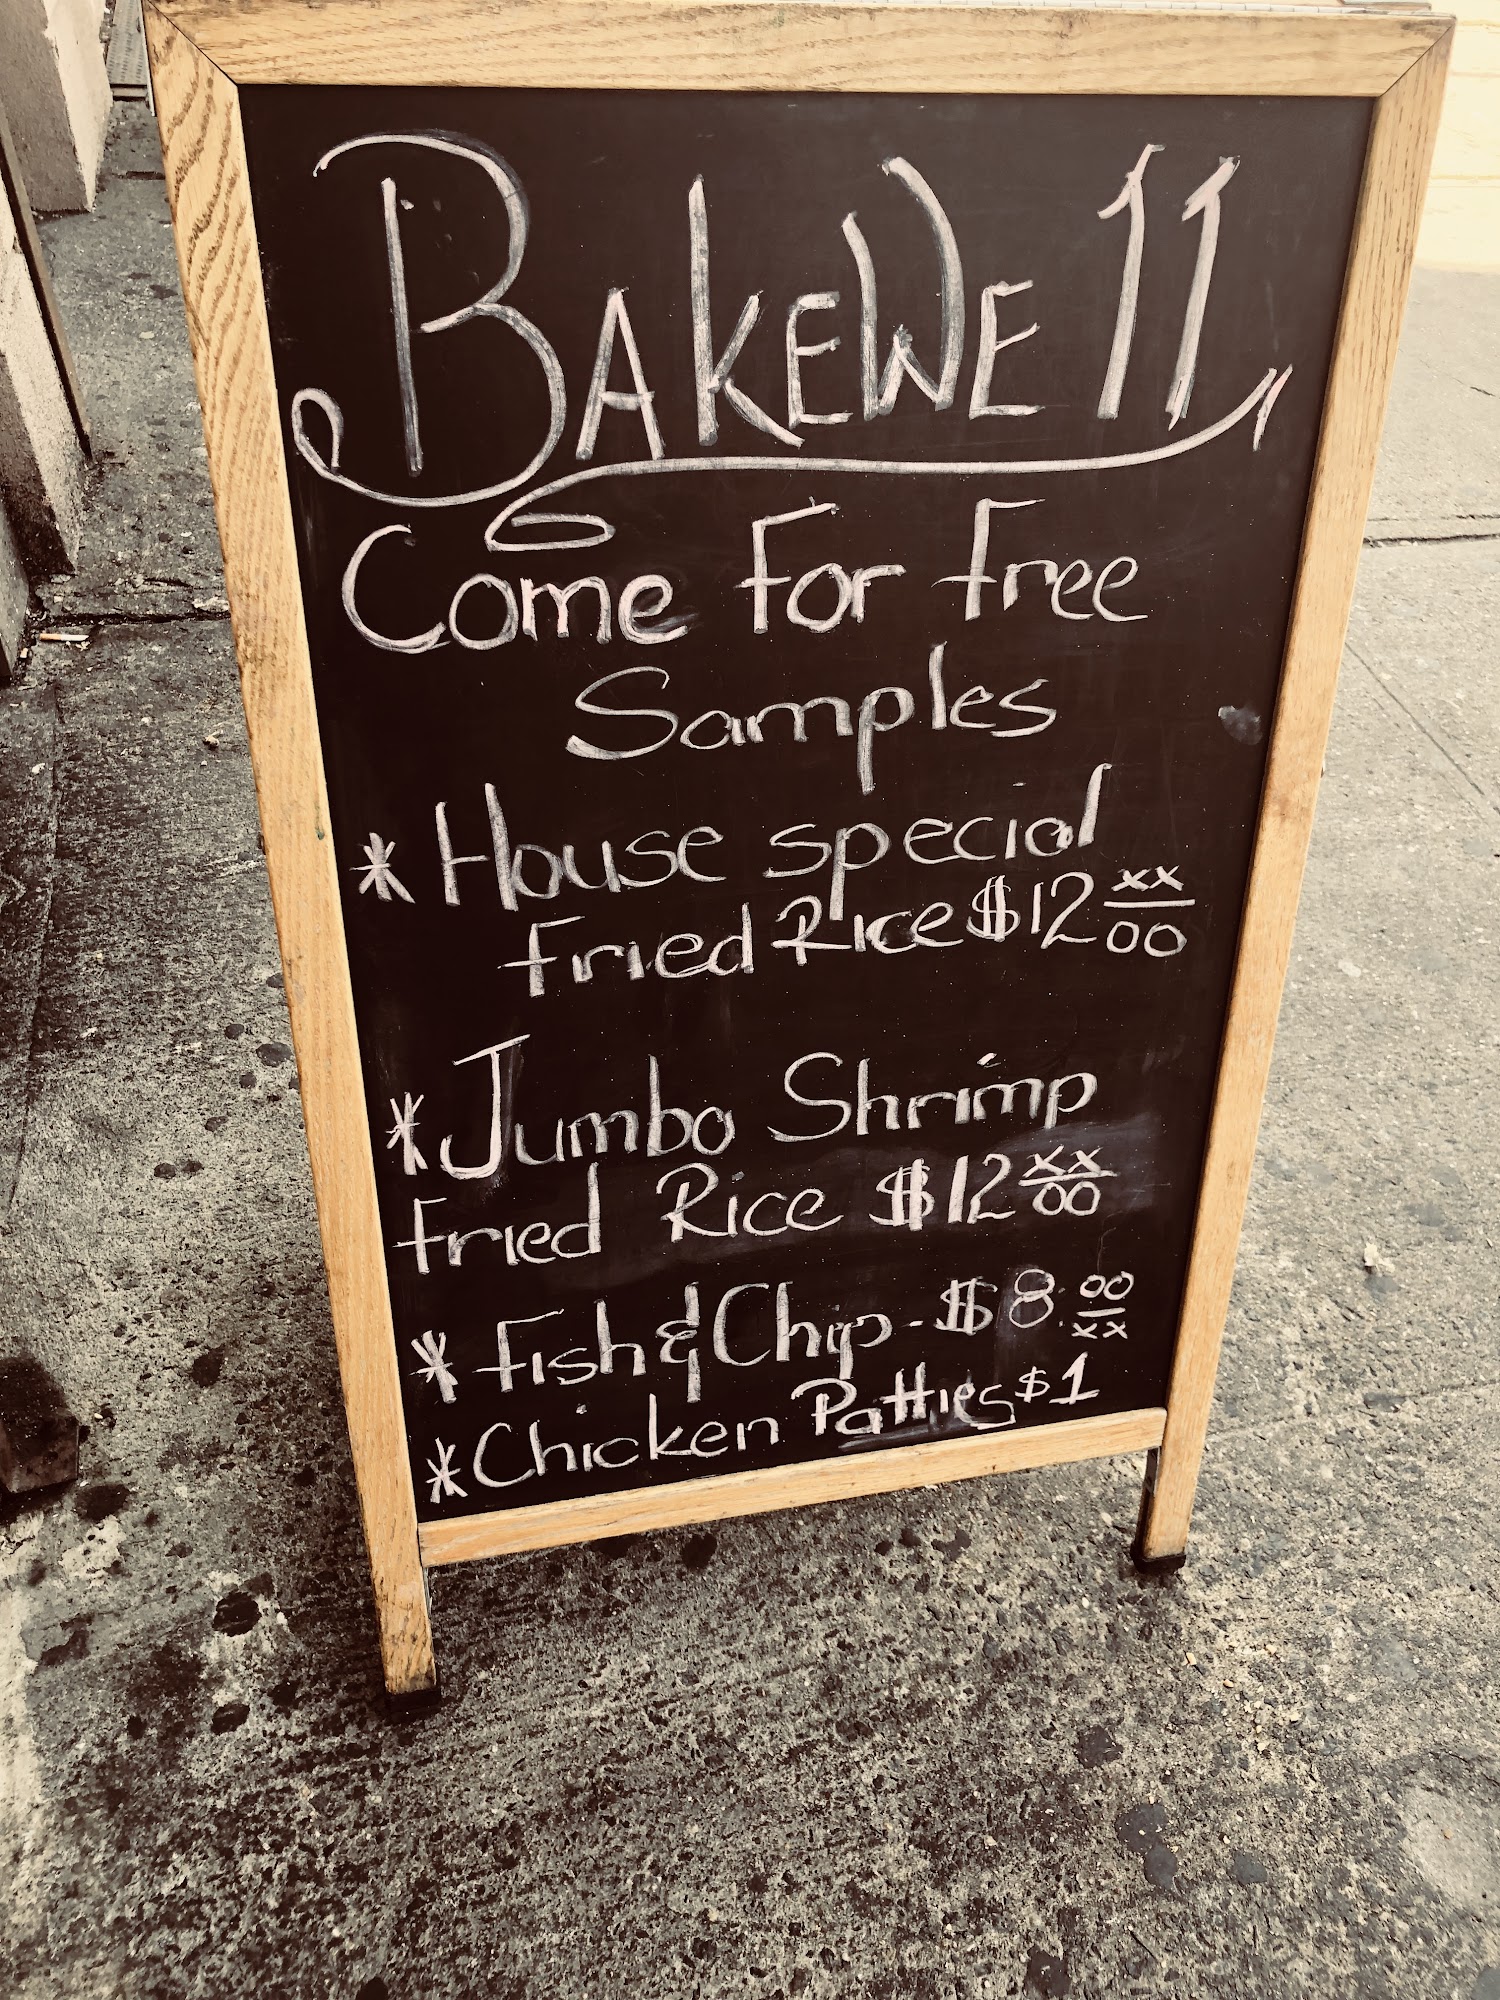 BAKEWELL
Come For Free
Samples
* House special
Fried Rice $12 xx/00
* Jumbo Shrimp
Fried Rice $12 xx/00
* Fish & Chip - $8.00/xx
* Chicken Patties $1